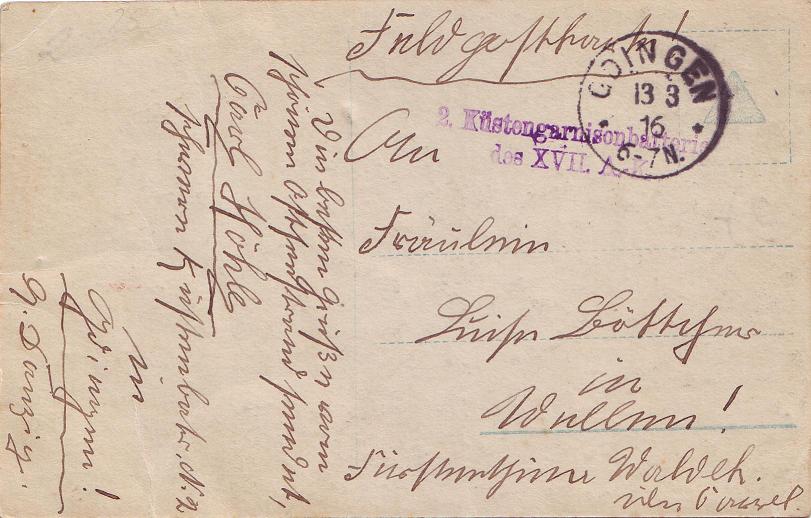 Feldpostkarte!
GDINGEN
13 3
16
6-7N.
2. Küstengarnisonbatterie
des XVII. A.-K.
An
Fräulein
Luise Böttcher
in
Wellen!
Fürstenthume Waldek.
über Cassel.
Die besten Grüße vom
schönen Ostseestrand sendet,
Carl Höhle
schweren Küstenbatr. N. 2
in
Gdingen!
b. Danzig.